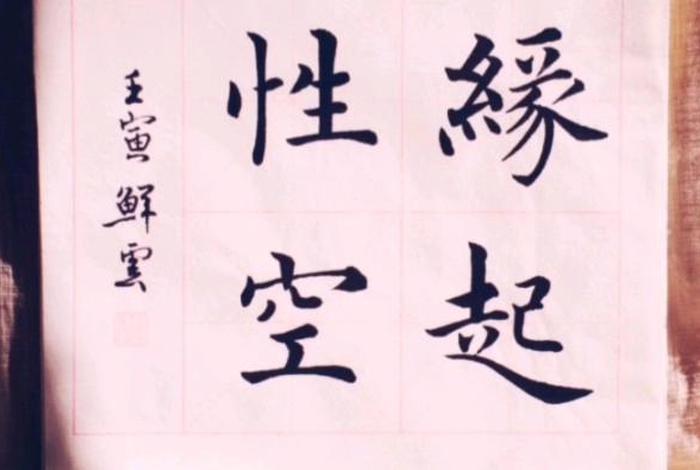 緣起
性空
壬寅鮮雲